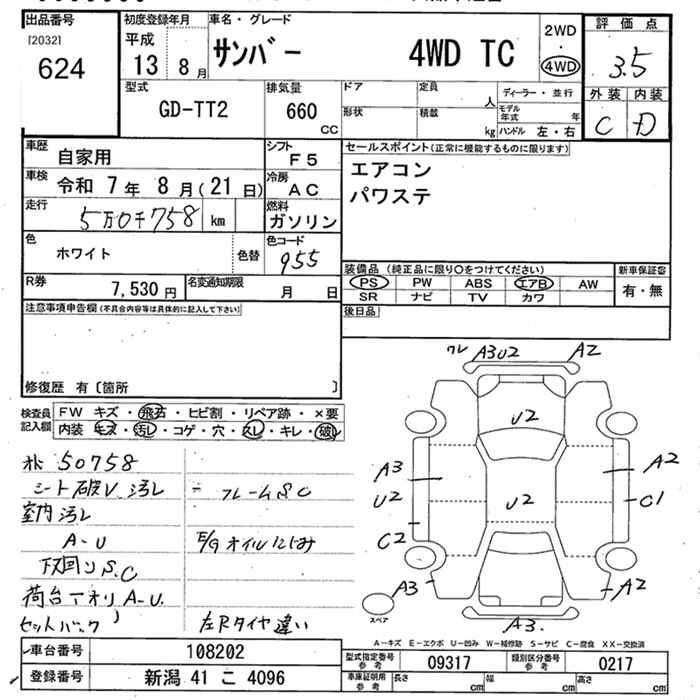 出品番号
[2032]
624
初度登録年月
平成
13 8月
車名・グレード
サンバー 4WD TC
2WD
・
4WD
評価点
3.5
外装 内装
C D
型式
GD-TT2
排気量
660
cc
ドア
形状
定員
人
積載
kg
ディーラー・並行
モデル年式 年
ハンドル 左・右
車歴
自家用
シフト
F5
セールスポイント(正常に機能するものに限ります)
エアコン
パワステ
車検
令和 7年 8月(21日)
冷房
AC
走行
5万0千758 km
燃料
ガソリン
色
ホワイト
色替
色コード
955
装備品 (純正品に限り○をつけてください)
PS PW ABS エアB AW
SR ナビ TV カワ
新車保証書
有・無
R券
7,530円
名変通知期限
月 日
後日品
注意事項申告欄(不具合内容等は具体的に記入して下さい)
修復歴 有〔箇所 〕
検査員記入欄
FW キズ・飛石・ヒビ割・リペア跡・×要
内装 キズ・汚レ・コゲ・穴・スレ・キレ・破レ
50758
シート破レ 汚レ
フレームS C
室内汚レ
A-U
E/Gオイルにじみ
下回りS.C
荷台アオリA-U.
セットバック
左Rタイヤ違い
ワレ A3U2 A2
U2
A3
U2
C2
U2
A2
C1
A3
A2
A3.
スペア
A-キズ E-エクボ U-凹み W-補修跡 S-サビ C-腐食 XX-交換済
車台番号
108202
登録番号
新潟 41 こ 4096
型式指定番号
参考
09317
類別区分番号
参考
0217
車庫証明用
参考
長さ cm
幅 cm
高さ cm